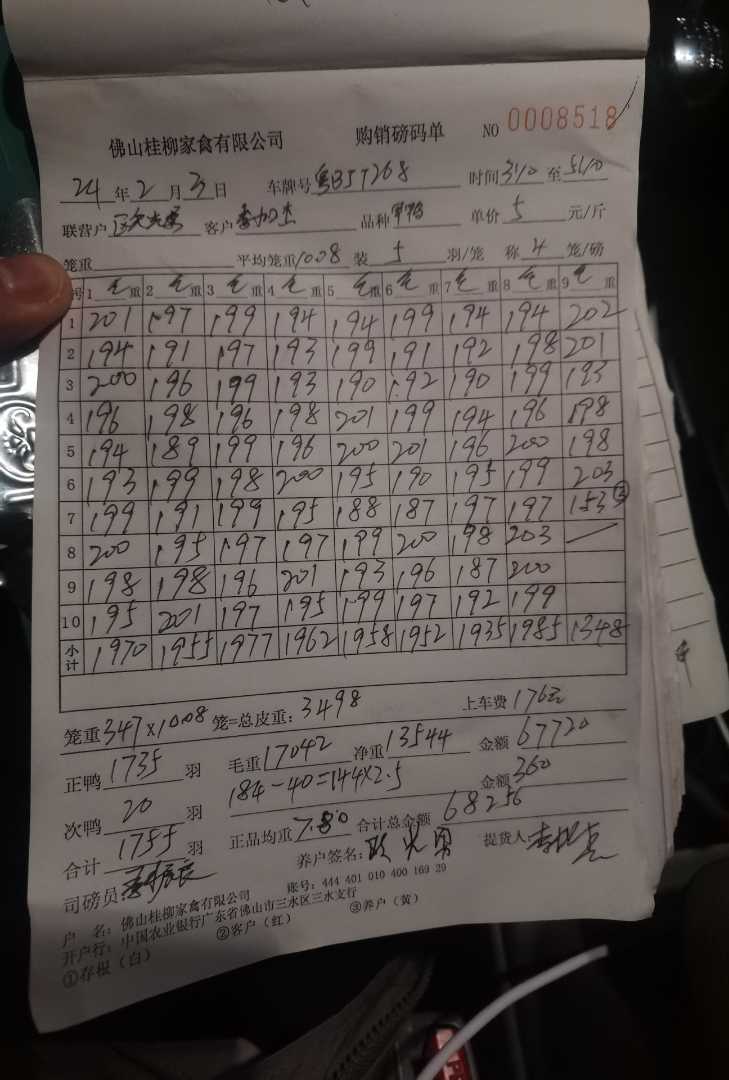 佛山桂柳家禽有限公司 购销磅码单 NO 0008518
24年2月3日 车牌号 粤B57268 时间3110至5110
联营户 客户 品种 单价 5 元/斤
笼重 平均笼重10.08 装 5 羽/笼 称 4 笼/磅
号 1 毛重 2 毛重 3 毛重 4 毛重 5 毛重 6 毛重 7 毛重 8 毛重 9 毛重
1 201 197 199 194 194 199 194 194 202
2 194 191 197 193 199 191 192 198 201
3 200 196 199 193 190 192 190 199 193
4 196 198 196 198 201 199 194 196 198
5 194 189 199 196 200 201 196 200 198
6 193 199 198 200 195 190 195 199 203
7 199 191 199 195 188 187 197 197 153 ③
8 200 195 197 197 199 200 198 203
9 198 198 196 201 193 196 187 200
10 195 201 197 195 199 197 192 199
小计 1970 1955 1977 1962 1958 1952 1935 1985 1348
笼重347×10.08 笼=总皮重：3498 上车费176元
正鸭 1735 羽 毛重17042 净重13544 金额 67720
次鸭 20 羽 184-40=144×2.5 金额360
合计 1755 羽 正品均重7.80 合计总金额 68256
司磅员 养户签名： 提货人
户 名：佛山桂柳家禽有限公司 账号：444 401 010 400 169 29
开户行：中国农业银行广东省佛山市三水区三水支行
①存根（白） ②客户（红） ③养户（黄）